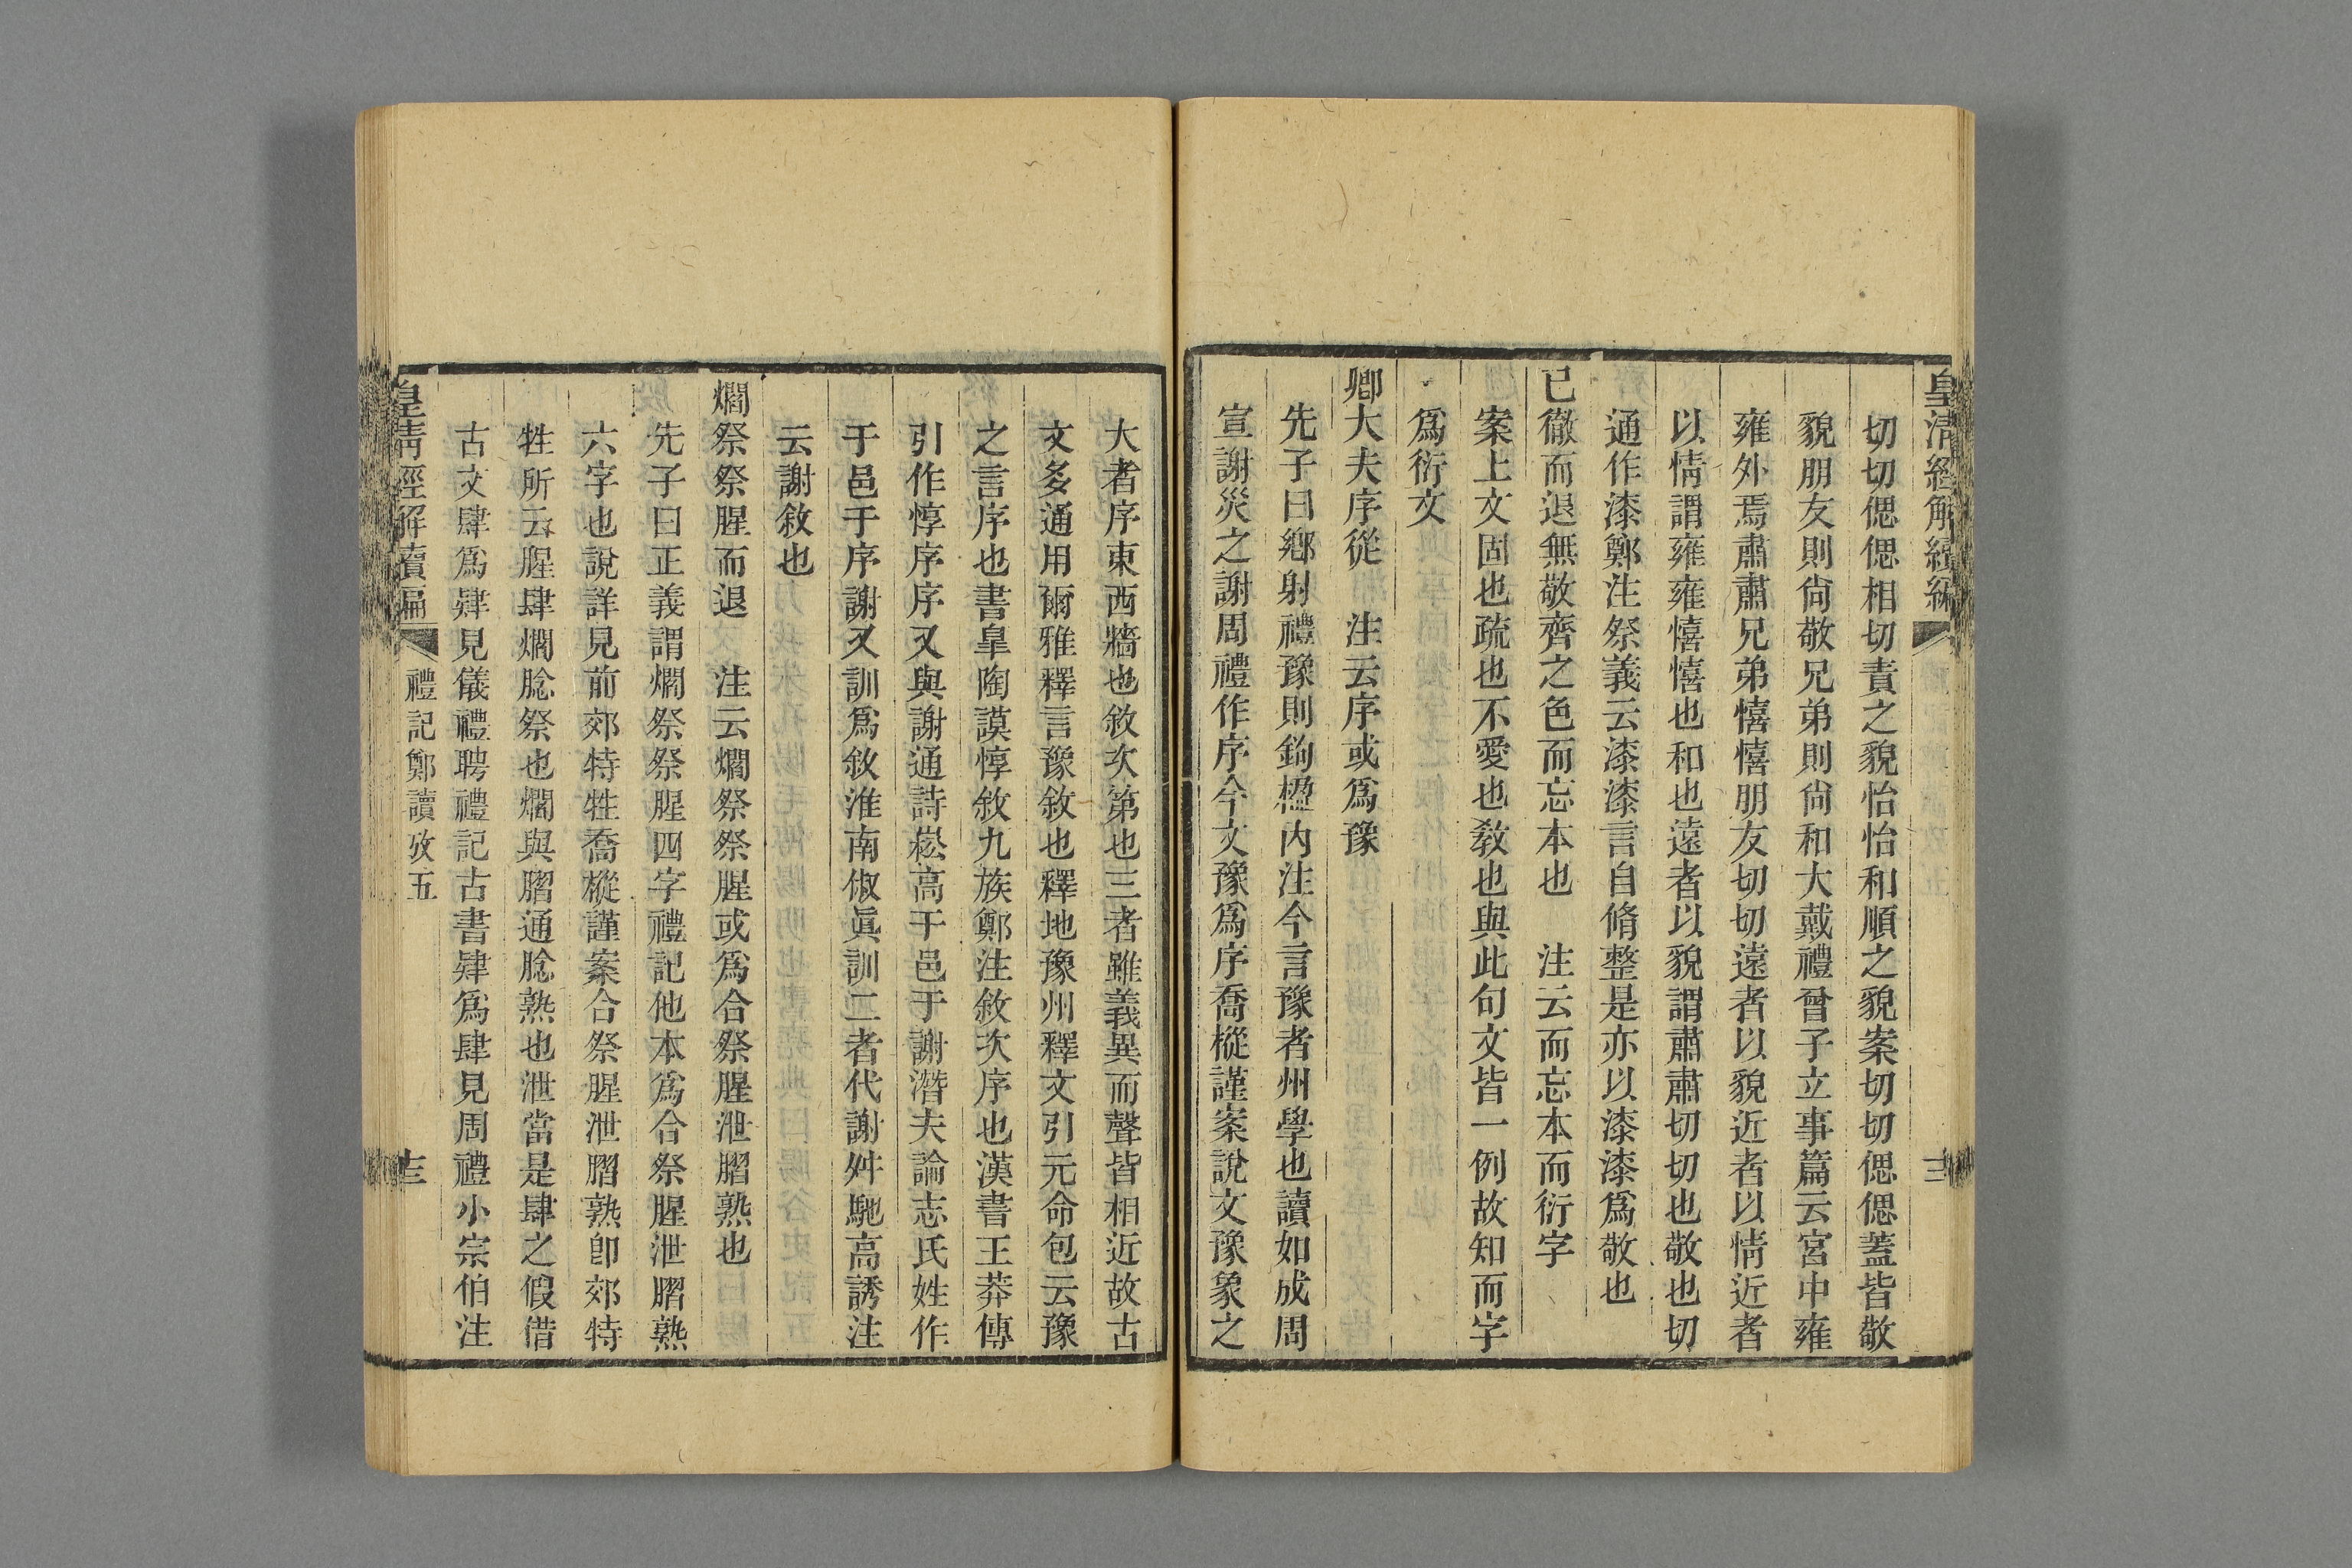 皇清經解續編
切切偲偲相切責之貌怡怡和順之貌案切切偲偲蓋皆敬
貌朋友則尙敬兄弟則尙和大戴禮曾子立事篇云宮中雍
雍外焉肅肅兄弟憘憘朋友切切遠者以貌近者以情近者
以情謂雍雍憘憘也和也遠者以貌謂肅肅切切也敬也切
通作漆鄭注祭義云漆漆言自脩整是亦以漆漆爲敬也
已徹而退無敬齊之色而忘本也　注云而忘本而衍字
案上文固也疏也不愛也敎也與此句文皆一例故知而字
爲衍文
卿大夫序從　注云序或爲豫
先子曰鄕射禮豫則鉤楹內注今言豫者州學也讀如成周
宣謝災之謝周禮作序今文豫爲序喬樅謹案說文豫象之
大者序東西牆也敘次第也三者雖義異而聲皆相近故古
文多通用爾雅釋言豫敘也釋地豫州釋文引元命包云豫
之言序也書皐陶謨惇敘九族鄭注敘次序也漢書王莽傳
引作惇序序又與謝通詩崧高于邑于謝潛夫論志氏姓作
于邑于序謝又訓爲敘淮南俶眞訓二者代謝舛馳高誘注
云謝敘也
爓祭祭腥而退　注云爓祭祭腥或爲合祭腥泄膶熟也
先子曰正義謂爓祭祭腥四字禮記他本爲合祭腥泄膶熟
六字也說詳見前郊特牲喬樅謹案合祭腥泄膶熟卽郊特
牲所云腥肆爓腍祭也爓與膶通腍熟也泄當是肆之假借
古文肆爲肄見儀禮聘禮記古書肄爲肆見周禮小宗伯注
皇清經解續編
禮記鄭讀攷五